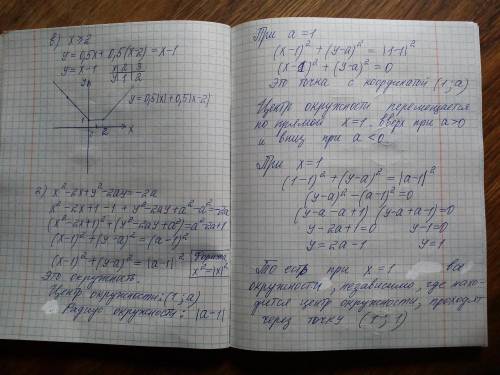 в) x ≥ 2
y = 0,5x + 0,5(x-2) = x-1
y = x-1 x|2|3
y|1|2
y
y = 0,5|x| + 0,5|x-2|
1
1 2 x
г) x² - 2x + y² - 2ay = -2a
x² - 2x + 1 - 1 + y² - 2ay + a² - a² = -2a
(x² - 2x + 1) + (y² - 2ay + a²) = a² - 2a + 1
(x-1)² + (y-a)² = (a-1)²
(x-1)² + (y-a)² = |a-1|²
x² = |x|²
Это окружность.
Центр окружности: (1; a)
Радиус окружности: |a-1|
При a = 1
(x-1)² + (y-a)² = |1-1|²
(x-1)² + (y-a)² = 0
Это точка с координатой (1; a)
Центр окружности перемещается
по прямой x = 1. вверх при a > 0
и вниз при a < 0
При x = 1
(1-1)² + (y-a)² = |a-1|²
(y-a)² - (a-1)² = 0
(y-a-a+1) (y-a+a-1) = 0
y - 2a + 1 = 0 y - 1 = 0
y = 2a - 1 y = 1
То есть при x = 1 все
окружности, независимо, где нахо-
дится центр окружности, проходят
через точку (1; 1)